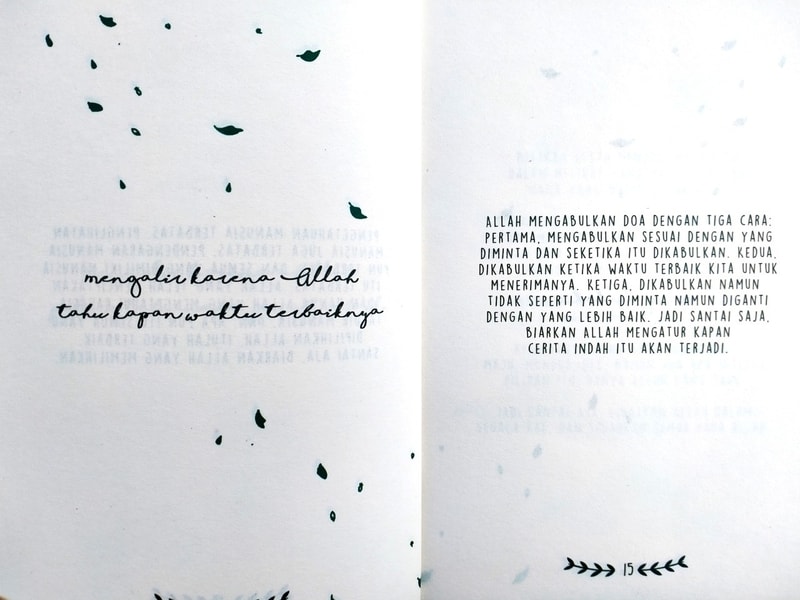 mengalir karena Allah
tahu kapan waktu terbaiknya
ALLAH MENGABULKAN DOA DENGAN TIGA CARA:
PERTAMA, MENGABULKAN SESUAI DENGAN YANG
DIMINTA DAN SEKETIKA ITU DIKABULKAN. KEDUA,
DIKABULKAN KETIKA WAKTU TERBAIK KITA UNTUK
MENERIMANYA. KETIGA, DIKABULKAN NAMUN
TIDAK SEPERTI YANG DIMINTA NAMUN DIGANTI
DENGAN YANG LEBIH BAIK. JADI SANTAI SAJA,
BIARKAN ALLAH MENGATUR KAPAN
CERITA INDAH ITU AKAN TERJADI.
15